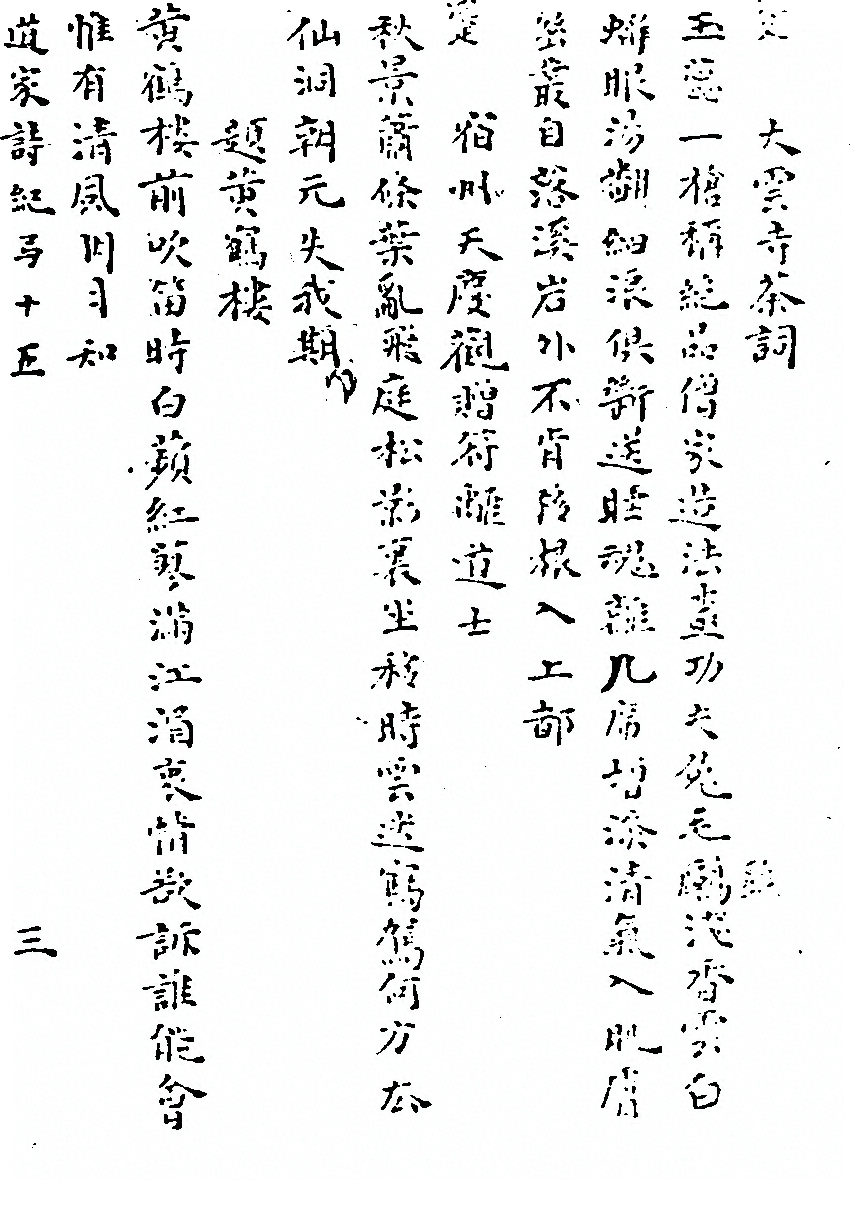 大雲寺茶詞
玉蕊一槍稱絕品僧家造法盡功夫兔毛甌淺香雲白
蝦眼湯翻細浪俱斷送睡魔離几席增添清氣入肌膚
叢自落溪岩外不肯移根入上都
宿州天慶觀贈符離道士
秋景蕭條葉亂飛庭松影裏坐移時雲迷鶴何方去
仙洞朝元失我期
題黃鶴樓
黃鶴樓前吹笛時白蘋紅蓼滿江湄衷情欲訴誰能會
惟有清風明月知
道家詩紀弓十五 三